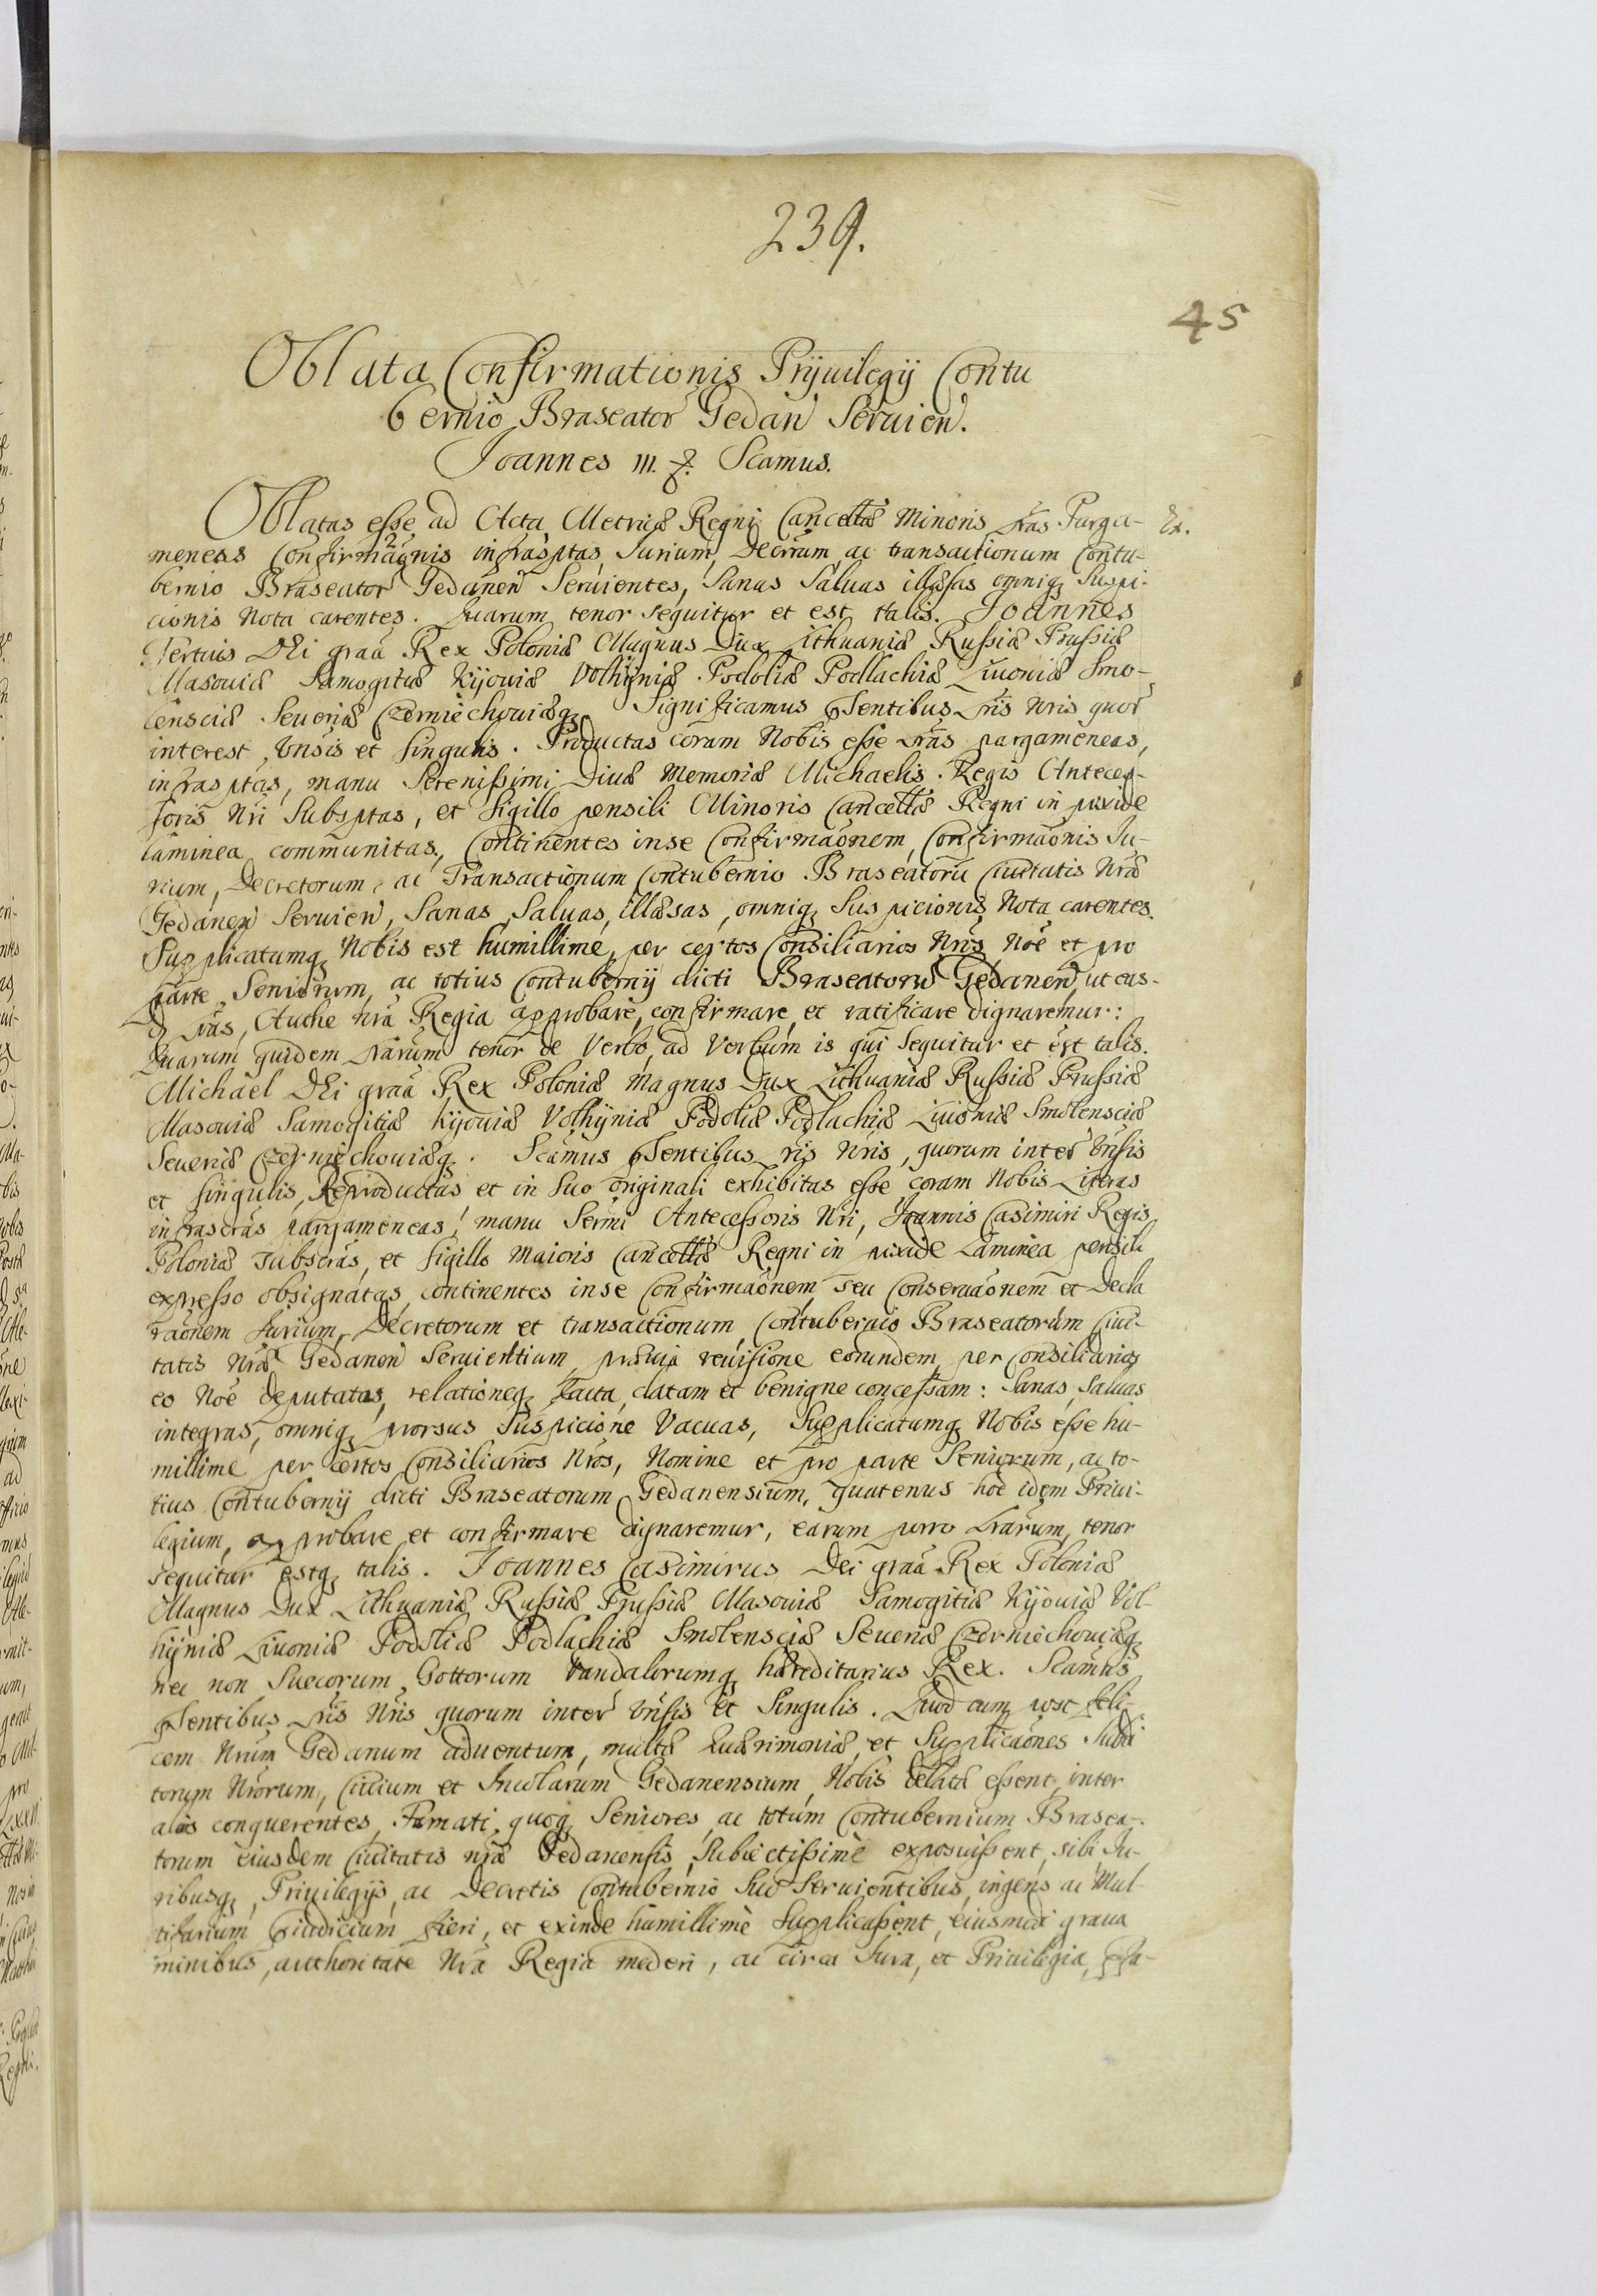 239.
45
Oblata Confirmationis Prijuilegij Contu
bernio Braseator Gedan Seruien.
Joannes III. Scamus.
Oblatas esse ad Acta Metricæ Regni Cancellæ Minoris Lras Parga-
meneas Confirmaōnis infrasptas, Jurium, Decrrum, ac transactionum Contu-
bernio Braseator Gedanen Seruientes, Sanas Saluas illæsas omniq Suspi-
cionis Nota carentes. Quarum tenor sequitur et est talis. Joannes
Tertius Dei graā Rex Poloniæ Magnus Dux Lithuaniæ Russiæ Prussiæ
Masouiæ Samogitiæ Kijouiæ Volhijniæ Podoliæ Podlachiæ Liuoniæ Smo-
lensciæ Seueriæ Czerniechouiæq. Significamus pSentibus Lris Nris quor
interest, Vnsis et singulis. Productas coram Nobis esse Lras pargameneas,
infrasptas, manu Serenissimi Diuæ Memoriæ Michaelis Regis Anteces-
soris Nri Subsptas, et sigillo pensili Minoris Cancellæ Regni in pixide
laminea communitas, Continentes inse Confirmaōnem, Confirmaōnis Ju-
rium, Decretorum, ac Transactionum Contubernio Braseatorū Ciuitatis Nræ
Gedanen Seruien, Sanas, Saluas, illæsas, omniq Suspicionis Nota carentes.
Supplicatumq Nobis est humillime, per certos Consiliarios Nros, Noē et pro
parte Seniorum, ac totius Contubernij dicti Braseatorū Gedanen, ut eas-
d Lras, Authe Nra Regia approbare, confirmare, et ratificare dignaremur:
Quarum quidem Lrarum tenor de Verbo ad Verbum is qui sequitur et est talis.
Michael Dei graā Rex Poloniæ Magnus Dux Lithuaniæ Russiæ Prussiæ
Masouiæ Samogitiæ Kijouiæ Volhijniæ Podoliæ Podlachiæ Liuoniæ Smolensciæ
Seueriæ Czerniechouiæq. Scamus pSentibus Lris Nris, quorum inter Vnsis
et singulis, Reproductas et in Suo originali exhibitas esse coram Nobis Literas
infrascras pargameneas, manu Sermi Antecessoris Nri, Joannis Casimiri Regis
Poloniæ subscras, et sigillo Maioris Cancellæ Regni in pixide Laminea pensili
expresso obsignatas, continentes inse Confirmaōnem seu Conseruaōnem et Decla
raōnem Jurium, Decretorum et transactionum, Contubernio Braseatorum Ciui-
tatis Nræ Gedanen Seruientium, præuia reuisione eorundem, per Consiliarios
eo Noē deputatas, relationeq facta, datam et benigne concessam: Sanas, Saluas
integras, omniq prorsus Suspicione Vacuas, Supplicatumq Nobis esse hu-
millime per Certos Consiliarios Nros, Nomine et pro parte Seniorum, ac to-
tius Contubernij dicti Braseatorum Gedanensium, quatenus hoc idem Priui-
legium, approbare et confirmare dignaremur, earum porro Lrarum, tenor
sequitur estq talis. Joannes Casimirus Dei graā Rex Poloniæ
Magnus Dux Lithuaniæ Russiæ Prussiæ Masouiæ Samogitiæ Kijouiæ Vol-
hijniæ Liuoniæ Podoliæ Podlachiæ Smolensciæ Seueriæ Czerniechouiæq
nec non Suecorum Gottorum Vandalorumq hæreditarius Rex. Scamus
pSentibus Lris Nris quorum inter Vnsis et Singulis. Quod cum post feli-
cem Nrum Gedanum aduentum, multæ Quærimoniæ, et Supplicaōnes Subdi
torum Nrorum, Ciuium et Incolarum Gedanensium, Nobis delatæ essent, inter
alios conquerentes, Famati quoq Seniores, ac totum Contubernium Brasea-
torum eiusdem Ciuitatis Nræ Gedanensis, Subiectissimè exposuissent, sibi Ju-
ribusq, Priuilegijs, ac Decretis Contubernio Suo Seruientibus, ingens ac Mul-
tifarium piudicium fieri, et exinde humillimè Supplicassent, eiusmodi graua
minibus, authoritate Nra Regia mederi, ac circa Jura, et Priuilegia,